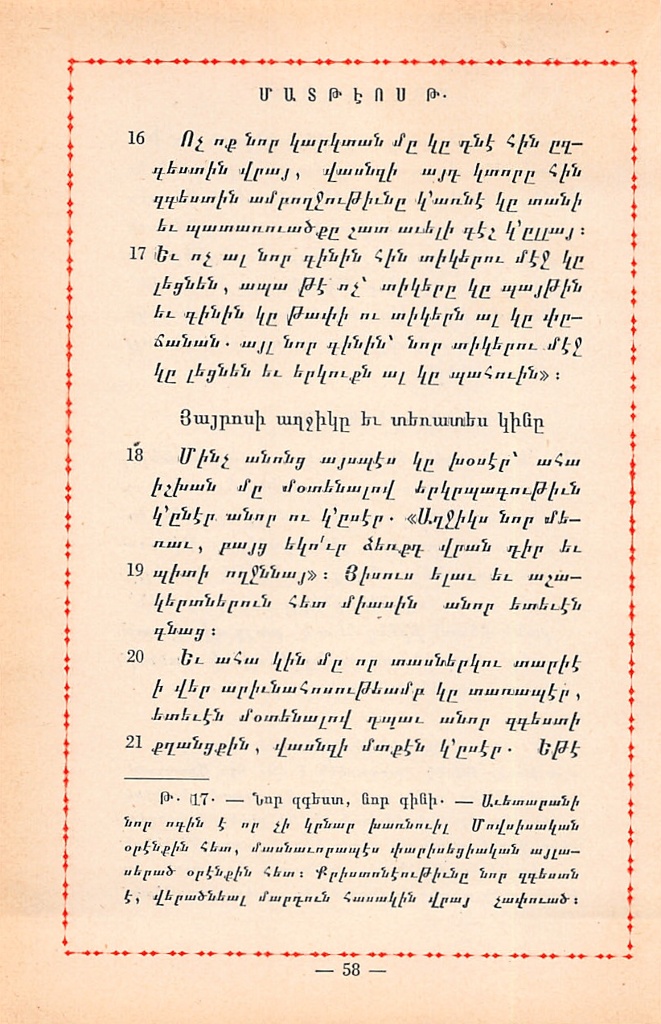 ՄԱՏԹԷՈՍ Թ.
16 Ոչ ոք նոր կարկտան մը կը դնէ հին ըզ–
գեստին վրայ, վասնզի այդ կտորը հին
զգեստին ամբողջութիւնը կ՚առնէ կը տանի
եւ պատառուածքը շատ աւելի գէշ կ՚ըլլայ:
17 Եւ ոչ ալ նոր գինին հին տիկերու մէջ կը
լեցնեն, ապա թէ ոչ՝ տիկերը կը պայթին
եւ գինին կը թափի ու տիկերն ալ կը փը–
ճանան. այլ նոր գինին՝ նոր տիկերու մէջ
կը լեցնեն եւ երկուքն ալ կը պահուին»:
Յայրոսի աղջիկը եւ տեռատես կինը
18 Մինչ անոնց այսպէս կը խօսէր՝ ահա
իշխան մը մօտենալով երկրպագութիւն
կ՚ընէր անոր ու կ՚ըսէր. «Աղջիկս նոր մե–
ռաւ, բայց եկո՛ւր ձեռքդ վրան դիր եւ
19 պիտի ողջննայ»: Յիսուս ելաւ եւ աշա–
կերտներուն հետ միասին անոր ետեւէն
գնաց:
20 Եւ ահա կին մը որ տասներկու տարիէ
ի վեր արիւնահոսութեամբ կը տառապէր,
ետեւէն մօտենալով դպաւ անոր զգեստի
21 քղանցքին, վասնզի մտքէն կ՚ըսէր. Եթէ
Թ. 17. — Նոր զգեստ, նոր գինի. — Աւետարանի
նոր ոգին է որ չի կրնար խառնուիլ Մովսիսական
օրէնքին հետ, մասնաւորապէս փարիսեցիական այլա–
սերած օրէնքին հետ: Քրիստոնէութիւնը նոր զգեստն
է, վերածնեալ մարդուն հասակին վրայ չափուած:
— 58 —